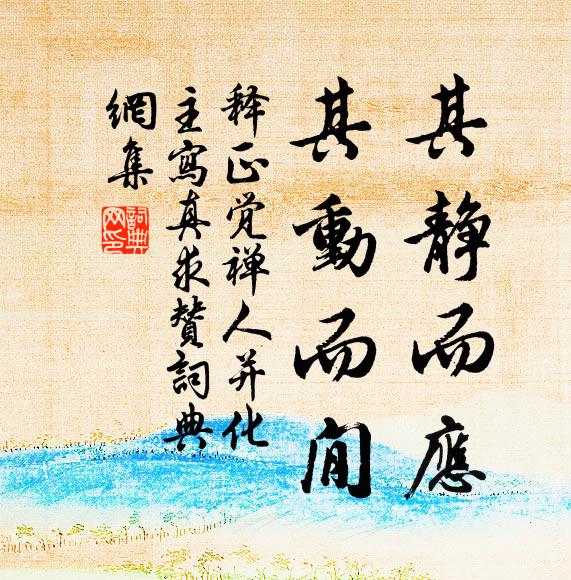 其静而應
其動而閒
释正觉禅人并化
主寫真求赞詞典
網集
詞典
网印